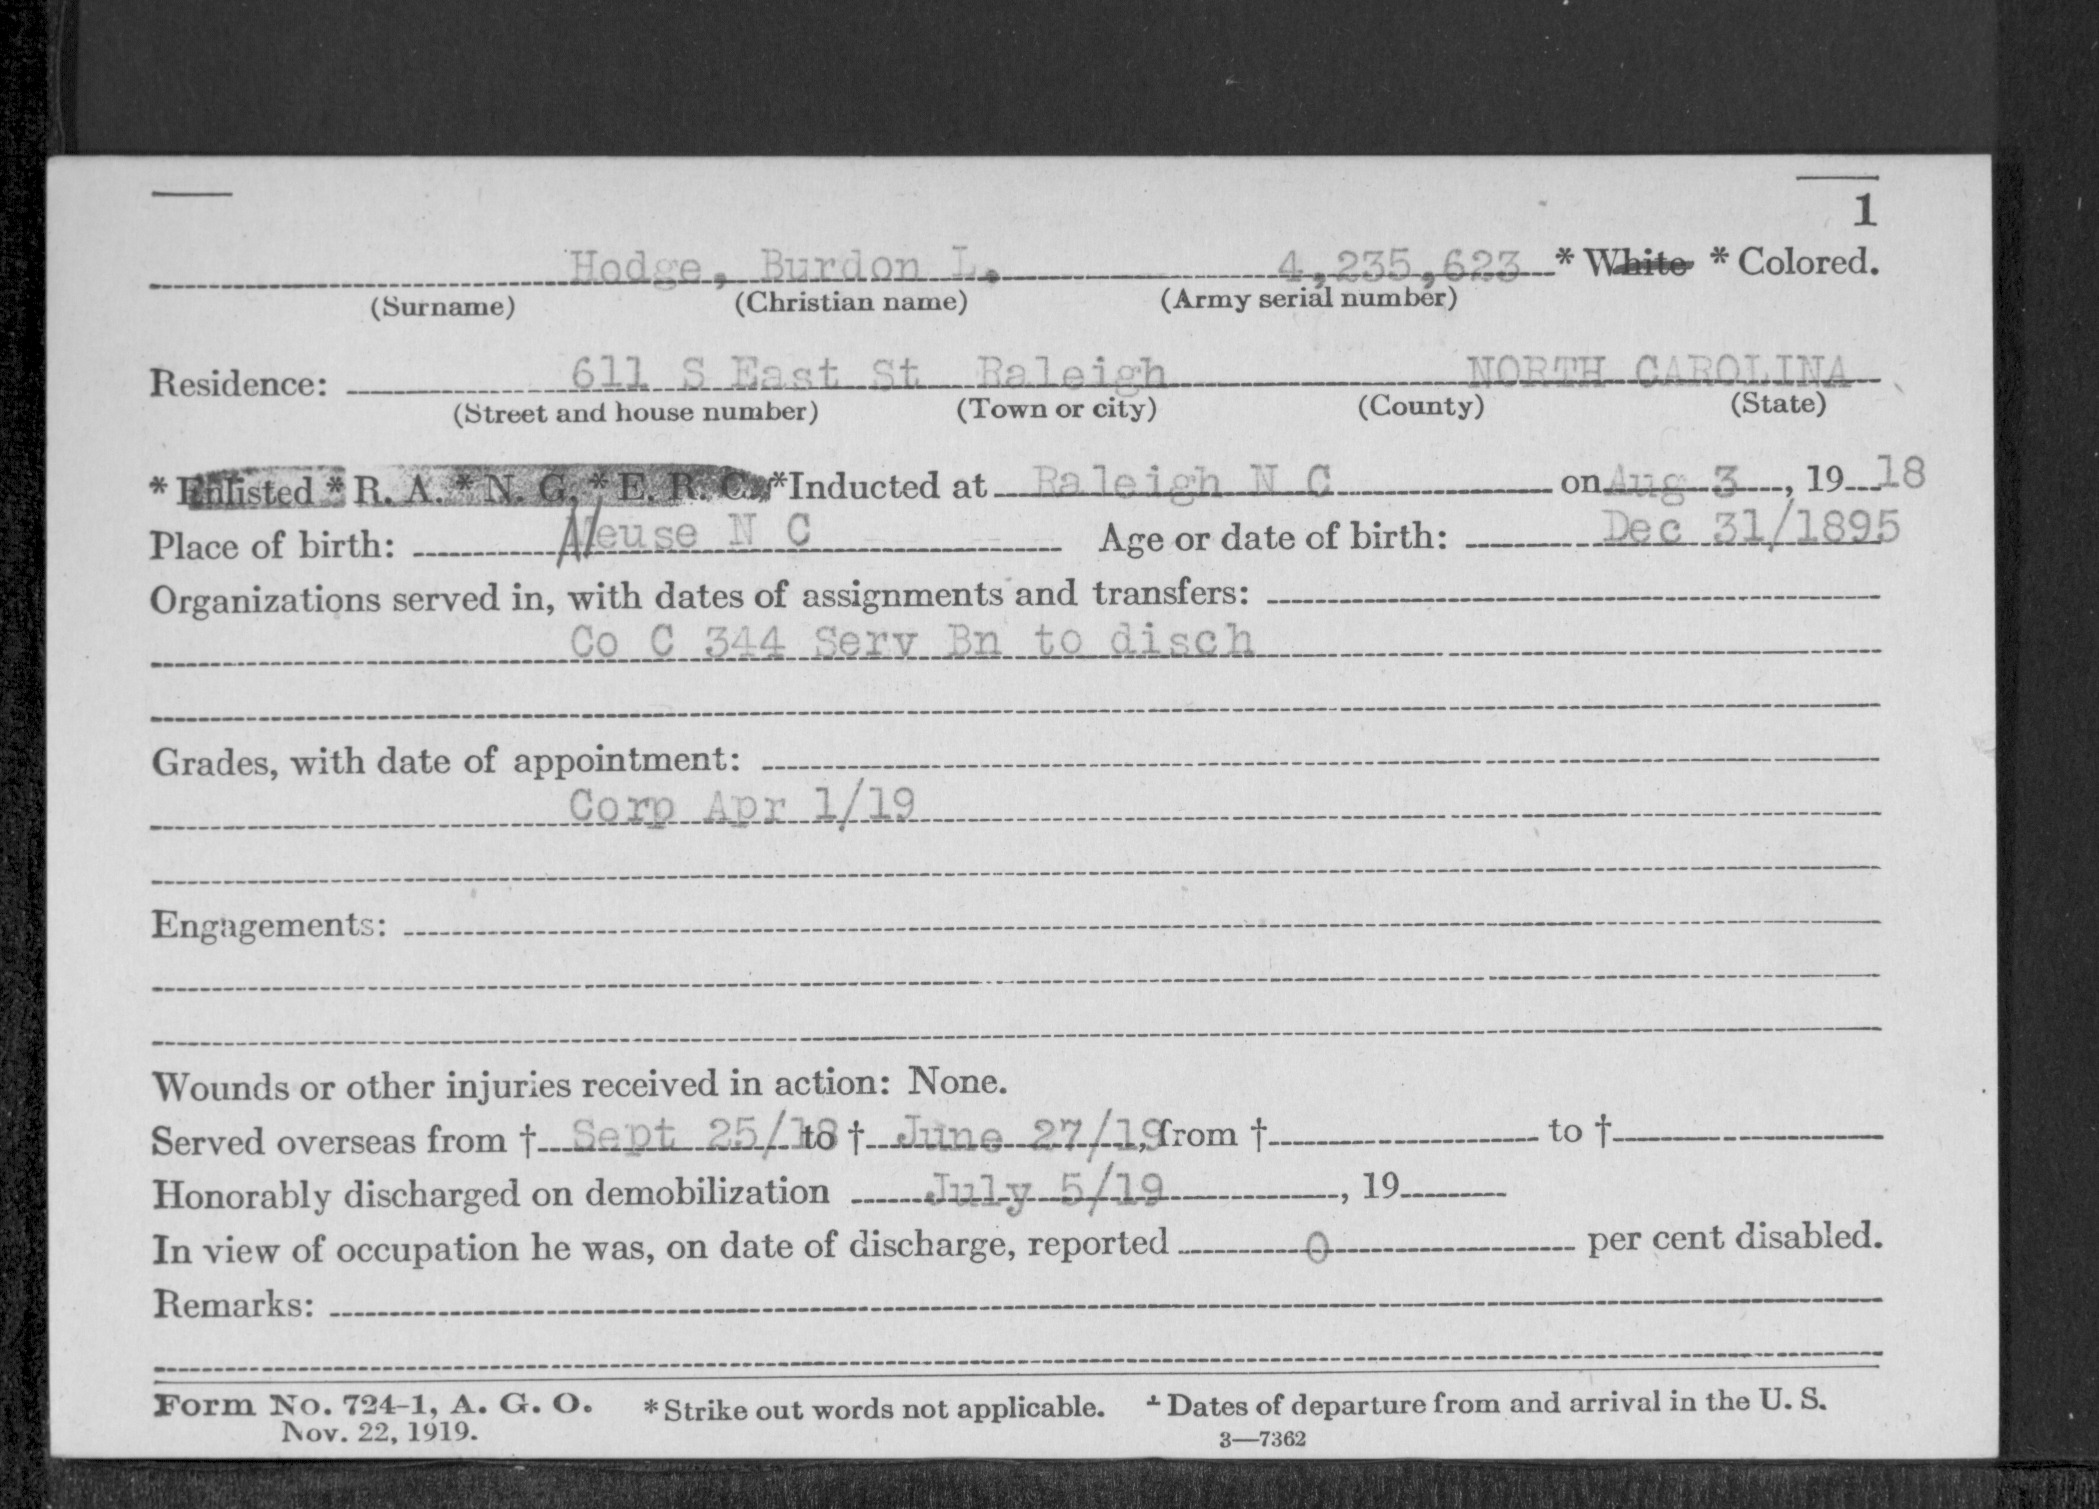 1
Hodge, Burdon L. 4,235,623 * White * Colored.
(Surname) (Christian name) (Army serial number)
Residence: 611 S East St Raleigh NORTH CAROLINA
(Street and house number) (Town or city) (County) (State)
* Enlisted * R. A. * N. G. * E. R. C. *Inducted at Raleigh N C on Aug 3, 19 18
Place of birth: Neuse N C Age or date of birth: Dec 31/1895
Organizations served in, with dates of assignments and transfers:
Co C 344 Serv Bn to disch
Grades, with date of appointment:
Corp Apr 1/19
Engagements:
Wounds or other injuries received in action: None.
Served overseas from † Sept 25/18 to † June 27/19, from † to †
Honorably discharged on demobilization July 5/19, 19
In view of occupation he was, on date of discharge, reported 0 per cent disabled.
Remarks:
Form No. 724-1, A. G. O. * Strike out words not applicable. † Dates of departure from and arrival in the U. S.
Nov. 22, 1919. 3—7362